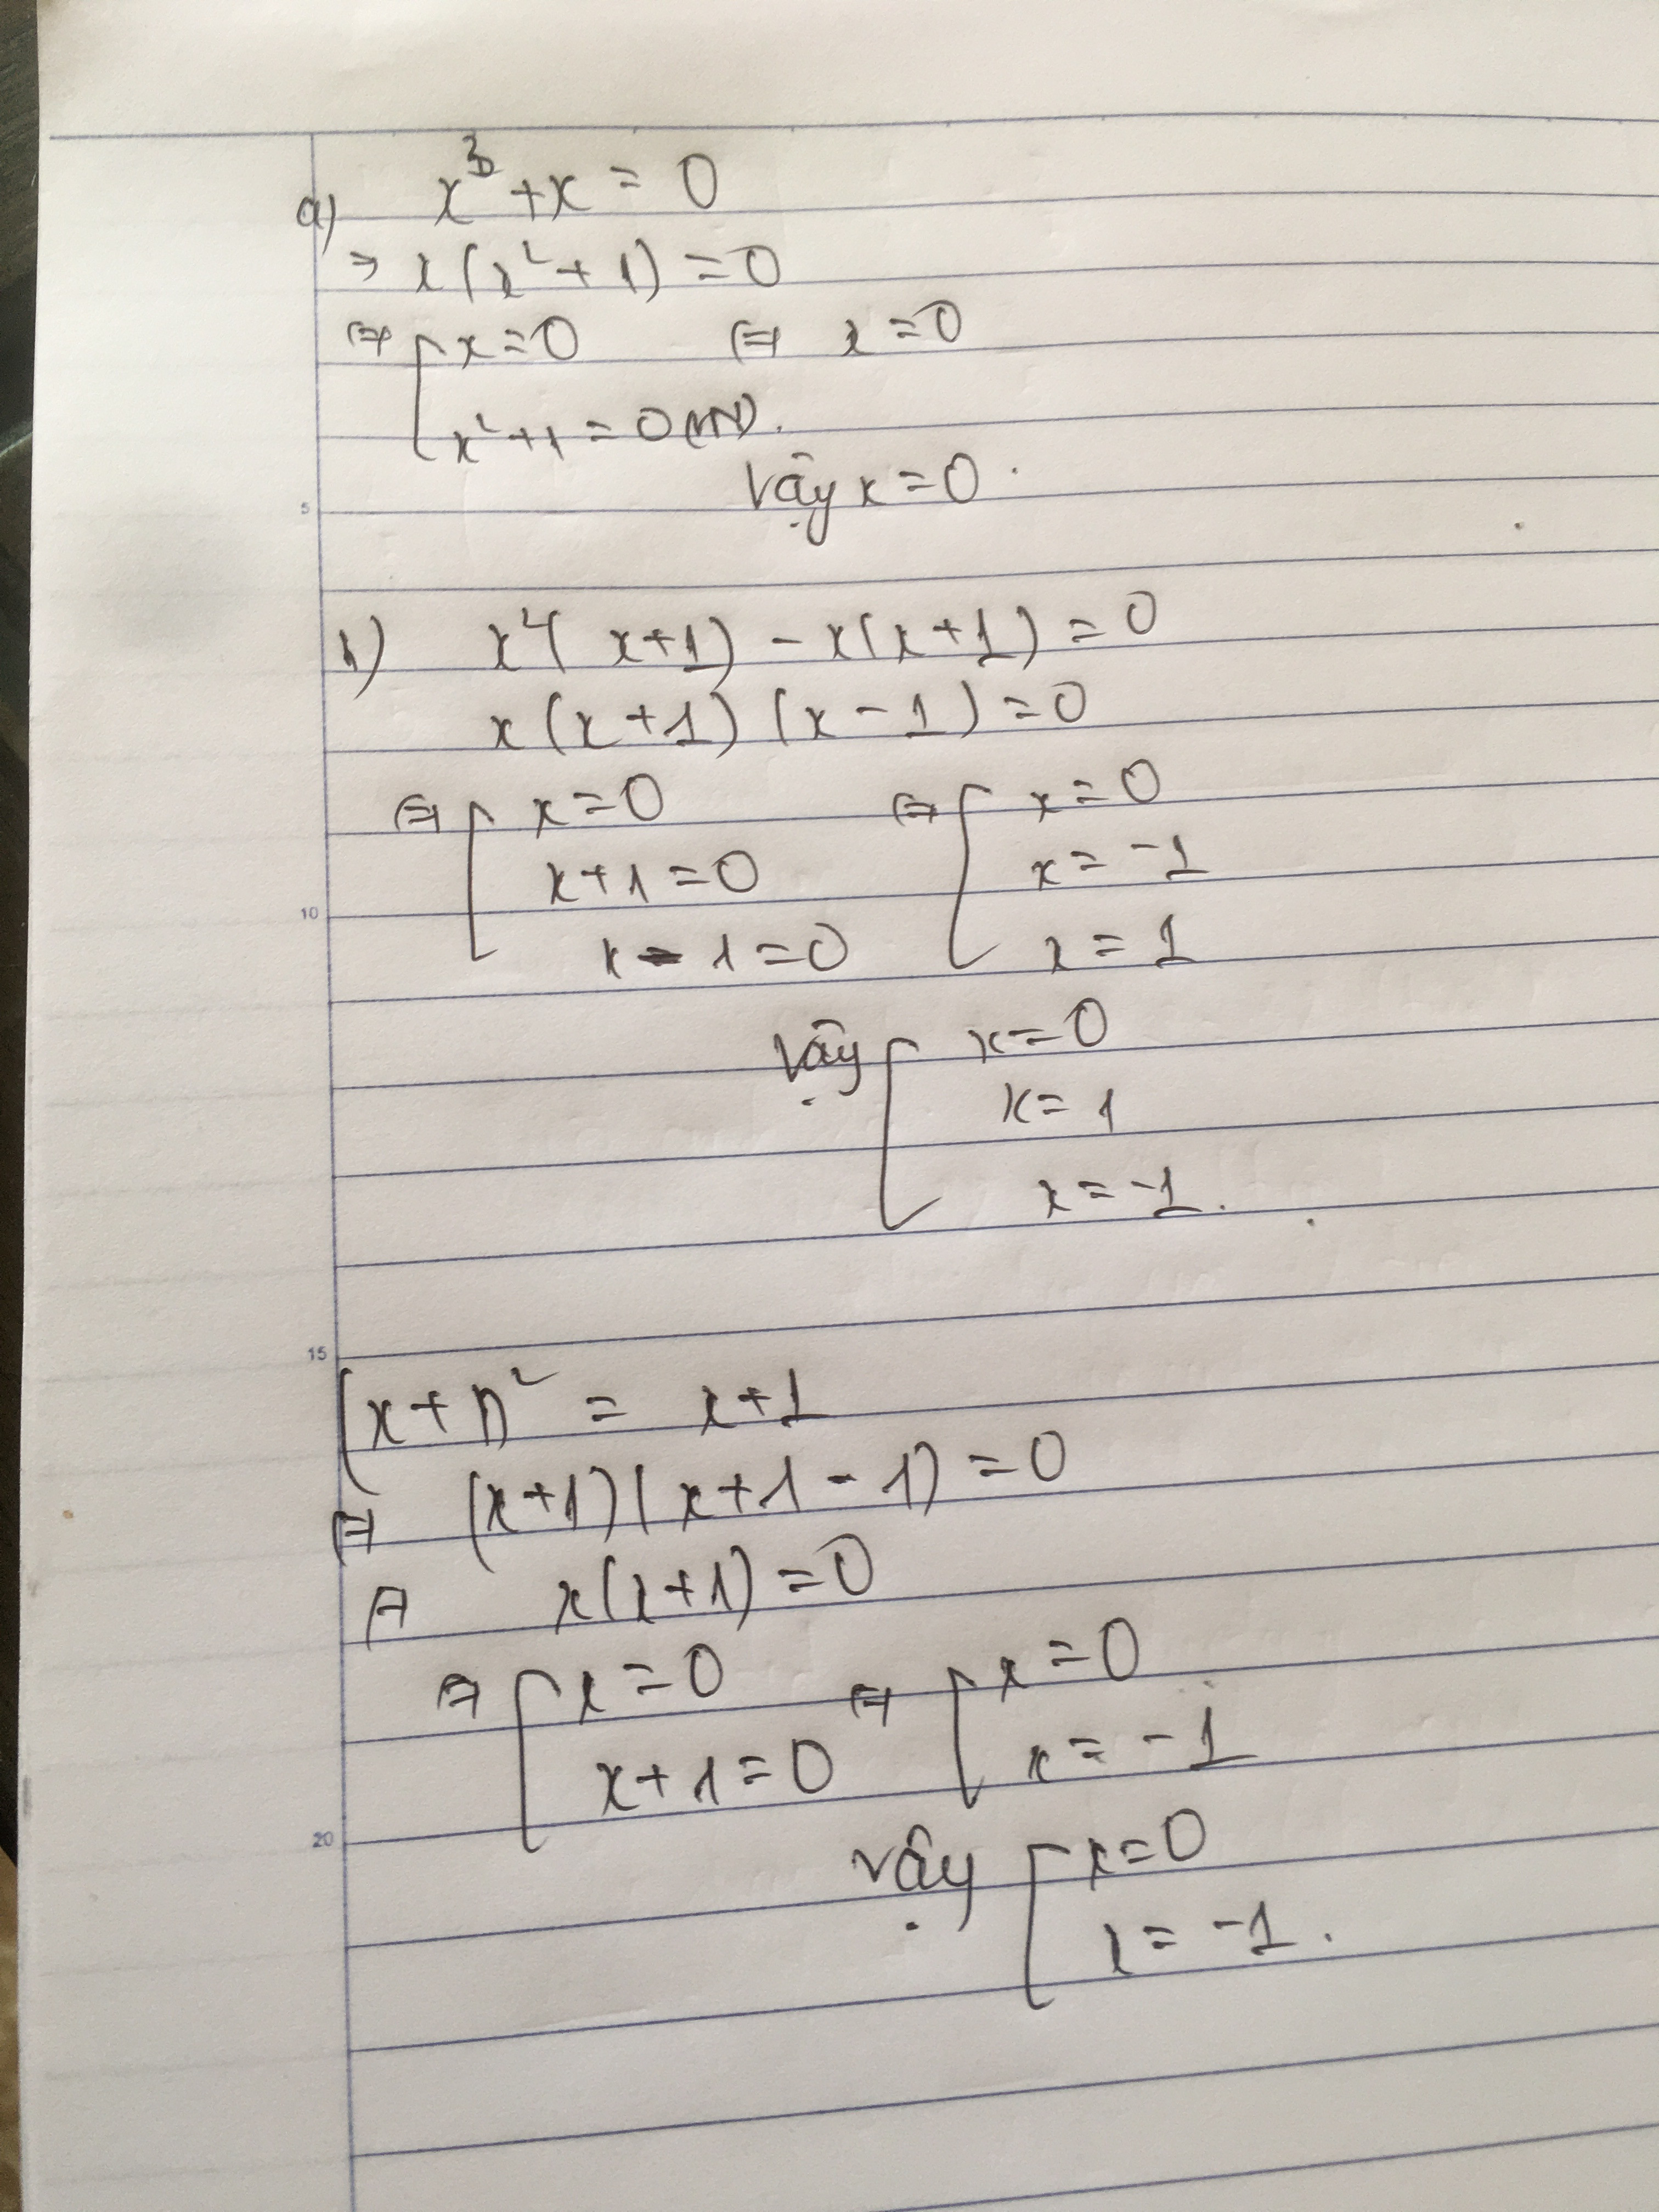 a) x³ + x = 0
⇒ x(x² + 1) = 0
⇔ [ x = 0 ⇔ x = 0
x² + 1 = 0 (VN).
Vậy x = 0.
5
b) x²(x+1) - x(x+1) = 0
x(x+1)(x-1) = 0
⇔ [ x = 0 ⇔ [ x = 0
x + 1 = 0 x = -1
10
x - 1 = 0 x = 1
Vậy [ x = 0
x = 1
x = -1.
15
(x+1)² = x+1
⇔ (x+1)(x+1-1) = 0
⇔ x(x+1) = 0
⇔ [ x = 0 ⇔ [ x = 0
x + 1 = 0 x = -1
20
Vậy [ x = 0
x = -1.